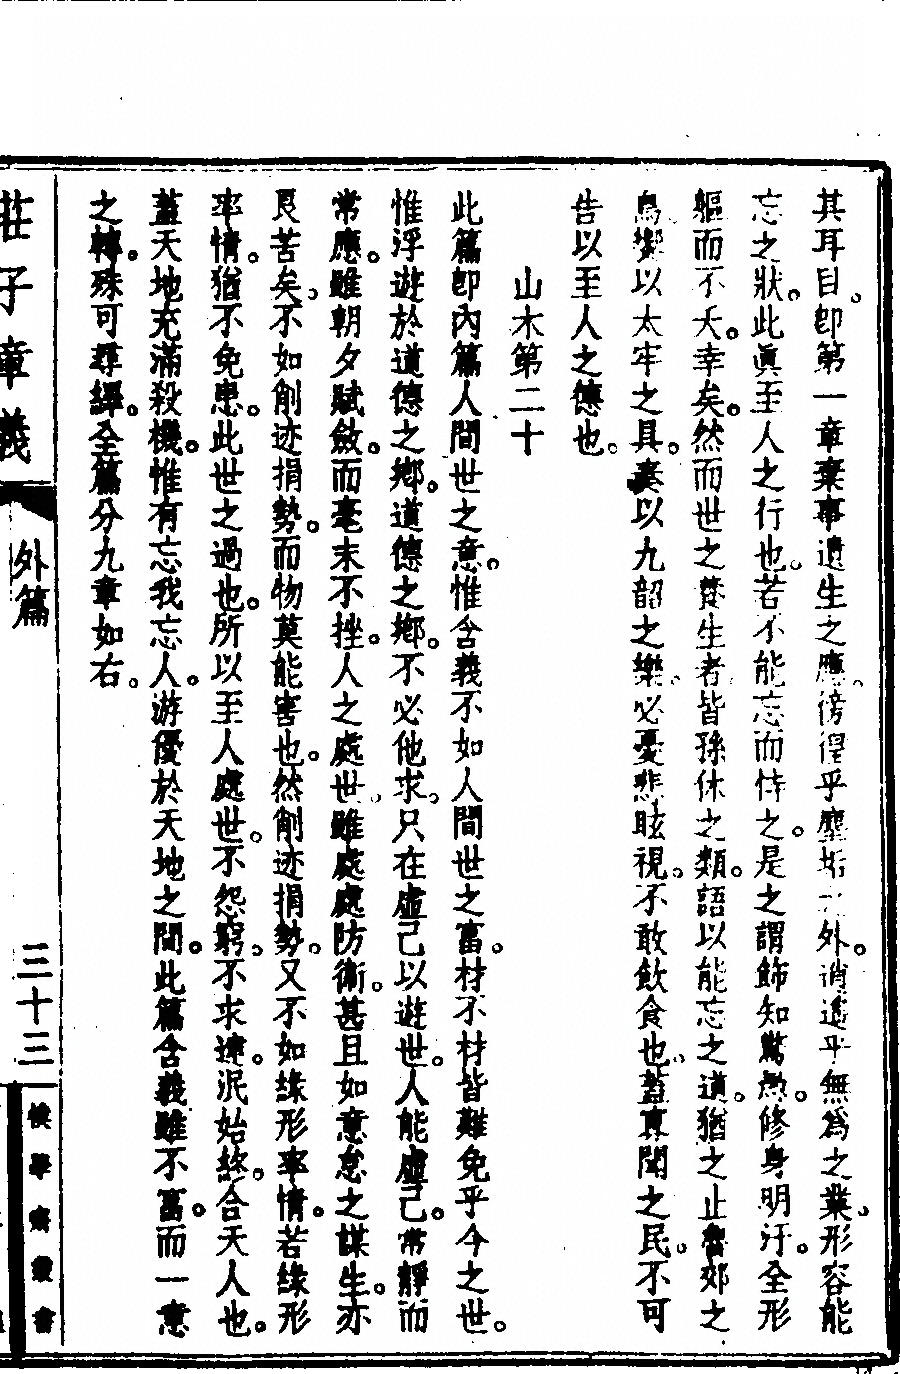 其耳目。即第一章棄事遺生之應。徬徨乎塵垢之外。逍遙乎無為之業。形容能
忘之狀。此眞至人之行也。若不能忘而恃之。是之謂飾知驚愚。修身明汙。全形
軀而不夭。幸矣。然而世之養生者。皆孫休之類。語以能忘之道。猶之止魯郊之
鳥。饗以太牢之具。奏以九韶之樂。必憂悲眩視。不敢飲食也。蓋寡聞之民。不可
告以至人之德也。
山木第二十
此篇即內篇人間世之意。惟含義不如人間世之富。材不材皆難免乎今之世。
惟浮遊於道德之鄉。道德之鄉。不必他求。只在虛己以遊世。人能虛己。常靜而
常應。雖朝夕賦斂。而毫末不挫。人之處世。雖處處防衛。甚且如意怠之謀生。亦
良苦矣。不如削迹捐勢。而物莫能害也。然削迹捐勢。又不如緣形率情。若緣形
率情。猶不免患。此世之過也。所以至人處世。不怨窮。不求達。泯始終。合天人也。
蓋天地充滿殺機。惟有忘我忘人。游優於天地之間。此篇含義雖不富。而一意
之轉。殊可尋繹。全篇分九章如右。
莊子章義
外篇
三十三
樸學齋叢書